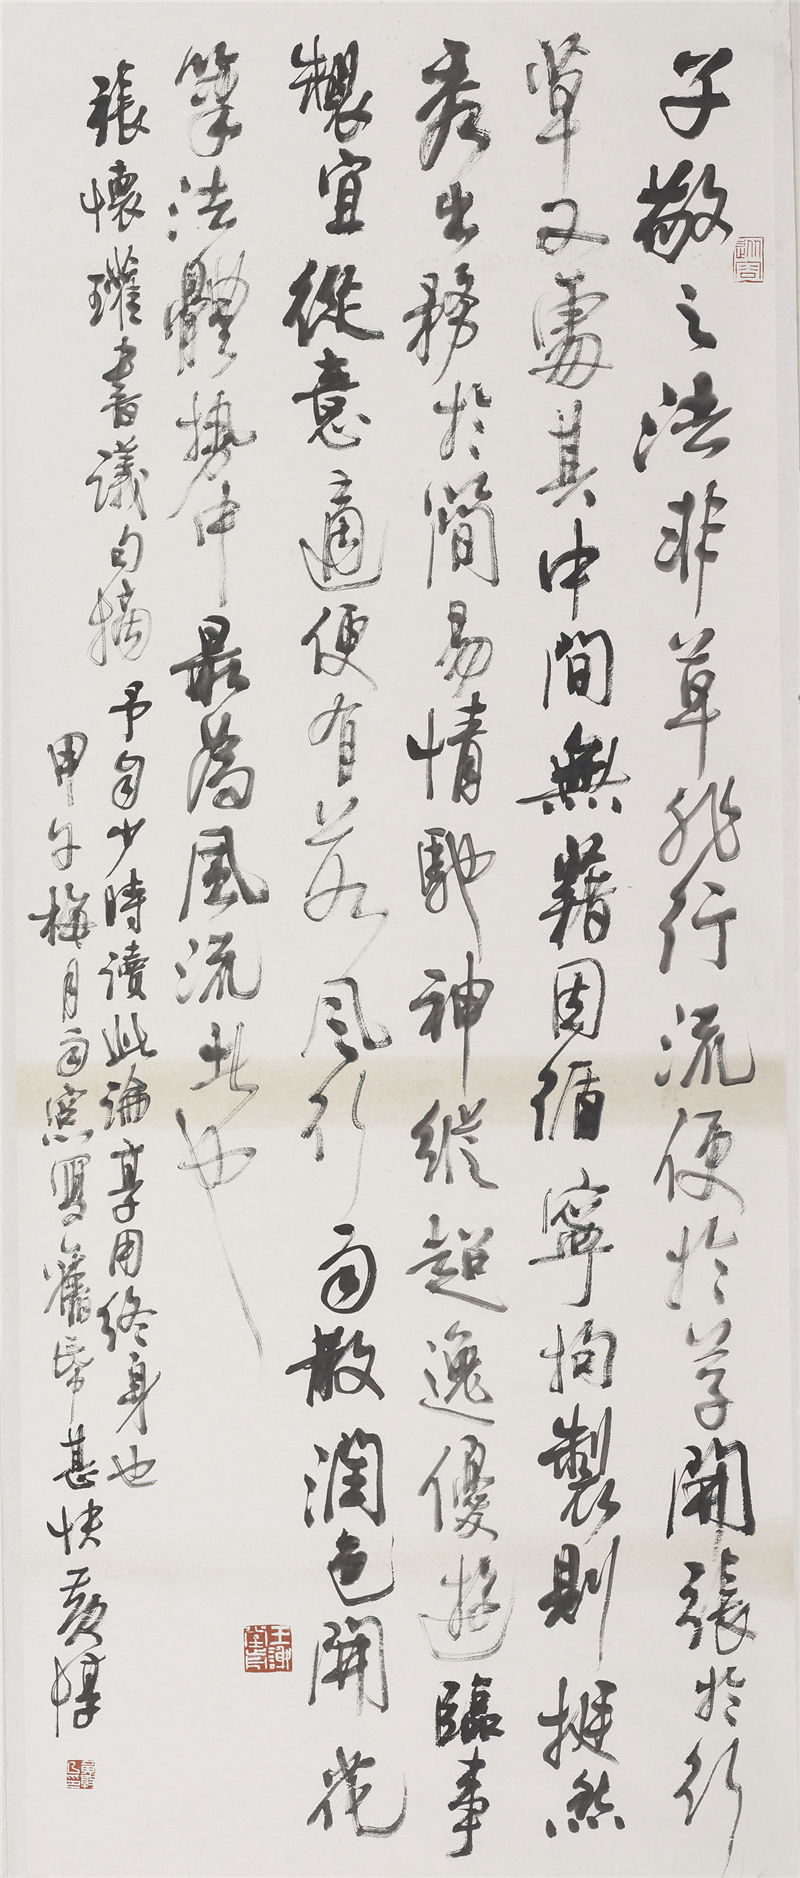 子敬之法非草非行流便於草開張於行
草又處其中間無藉因循寧拘製則挺然
秀出務於簡易情馳神縱超逸優遊臨事
製宜從意適便有若風行雨散潤色開花
筆法體勢中最為風流者也
張懷瓘書議句摘
予自少時讀此論享用終身也
甲午梅月雨窓寫舊帋甚快黃惇